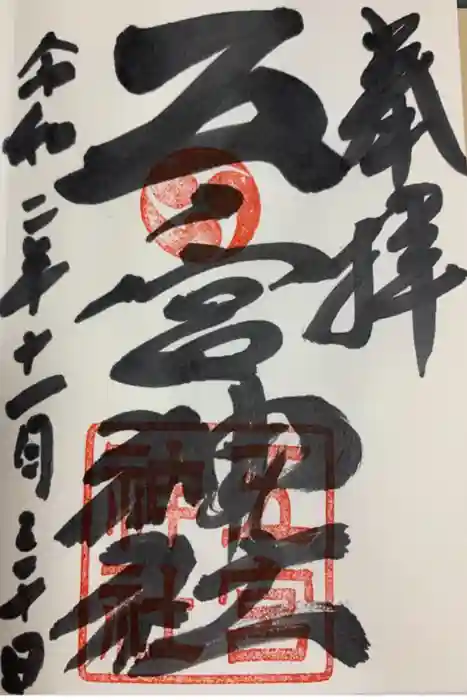 奉拝
五宮神社
令和二年十一月三十日
五宮
神社